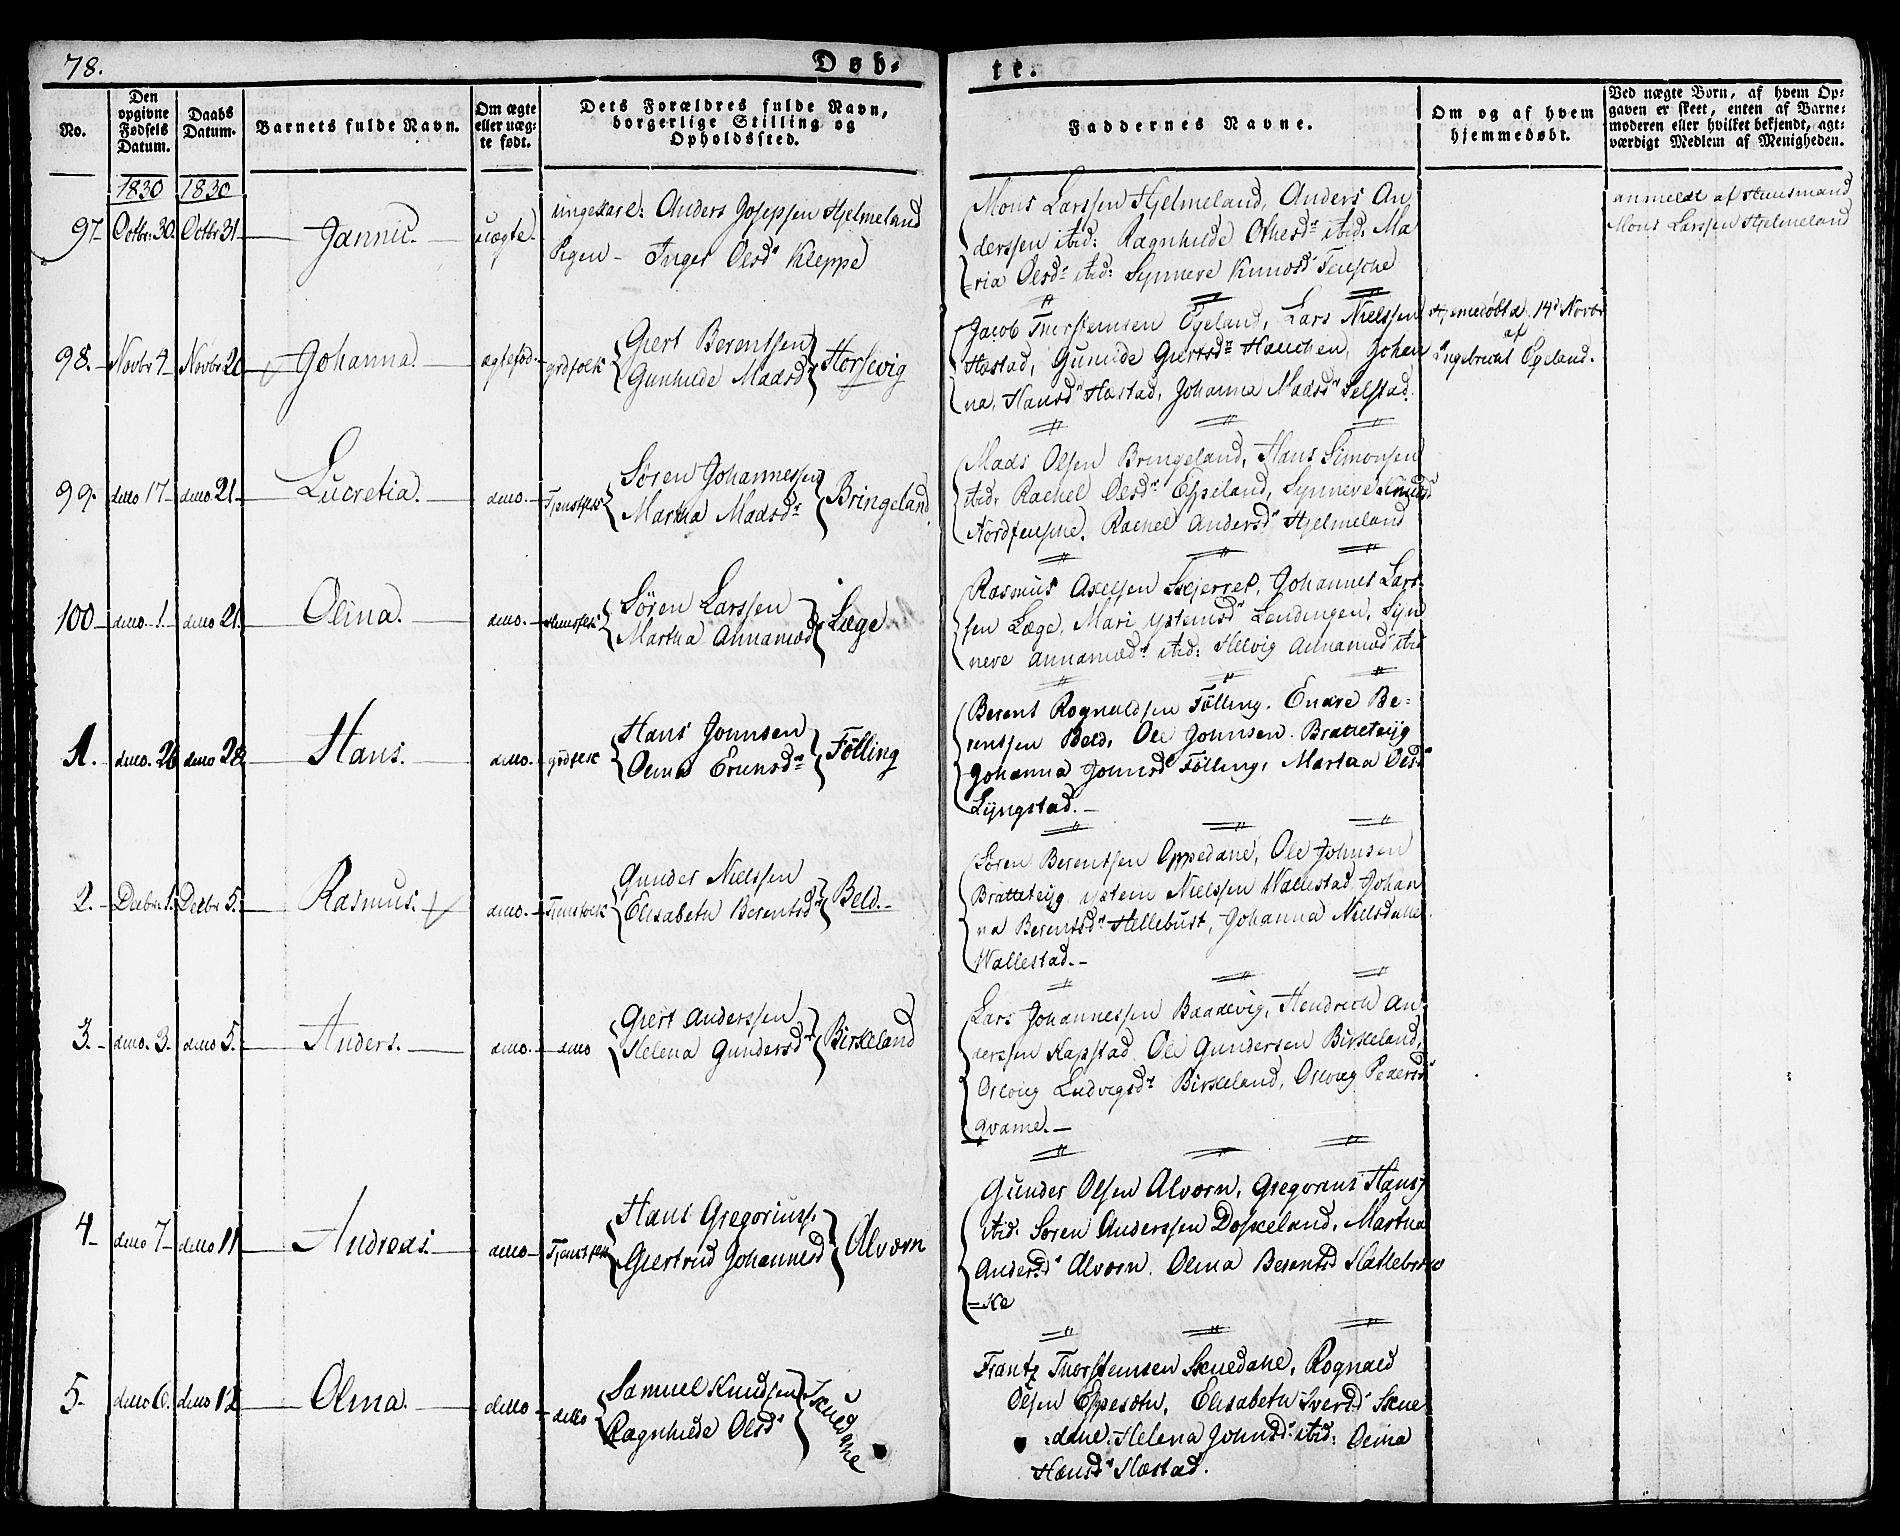 78.
Døb-
te.
No.
Den
opgivne
Fødsels
Datum.
Daabs
Datum.
Barnets fulde Navn.
Om ægte
eller uæg-
te født.
Dets Forældres fulde Navn,
borgerlige Stilling og
Opholdssted.
Faddernes Navne.
Om og af hvem
hjemmedøbt.
Ved uægte Børn, af hvem Op-
gaven er skeet, enten af Barne-
moderen eller hvilket bekjendt, agt-
værdigt Medlem af Menigheden.
1830 1830
97 Octbr: 30. Octbr 31 Jannic. uægte.
ungekarl: Anders Josepsen Hjelmeland
Pigen - Inger Olsdr Kleppe
Mons Larssen Hjelmeland, Anders An-
derssen ibid: Ragnhilde Othesdr ibid: Ma
=ria Olsdr ibid: Synneve Knudsdr
anmeldt af Huusmand
Mons Larssen Hjelmeland
98. Novbr 4 Novbr 20 Johanna. ægtefød. grdfolk
Giert Berentsen
Gunhilde Madsdr
Horsevig
Jacob Thorsteinsen Egeland, Lars Nielssen
Hæstad, Gunilde Giertsdr Hauchen, Johan
na Hansdr Hæstad, Johanna Madsdr Selstad.
Hjemedøbt d. 14d Novbr
af
Ingebrigt Egeland.
99. detto 17 detto 21 Lucretia. detto.
Søren Johannessen
Martha Madsdr
Bringeland
Mads Olsen Bringeland, Hans Simonsen
ibid: Rachel Olsdr Espeland, Synneve Knudsd
Rachel Andersdr Hjelmeland
100 detto 1. detto 21. Olina. detto.
Søren Larssen
Martha Annamædr
Læge
Rasmus Axelsen Skjerret, Johannes Lars-
sen Læge, Mari Ysteinsdr Lendingen, Syn
neve Annamædr ibid: Helvig Annamæd ibid
1. detto. 26 detto 28 Hans. detto. grdfolk
Hans Johnsen
Olina
Følling
Berent Rognaldsen Følling. Endre Be-
rentsen Beld, Ole Johnsen Bratteteijg
Johanna Johnsdr Følling, Martha Olsdr
Lyngstad.
2. Decbr. 1. Decbr 5. Rasmus. detto. Tjenstfolk
Gunder Nielssen
Elisabeth Berentsdr
Beld.
Søren Berentsen Eppedahl, Ole Johnsen
Bratteteijg Ystein Nielssen Wallestad Johan
na Berentsdr Hellebust, Johanna Nielsdatter
Wallestad.
3. detto. 3. detto 5. Anders. detto. detto
Giert Anderssen
Helena Gundersdr
Birkeland
Lars Johannessen Baadevig, Hendrich An-
derssen Kapstad Ole Gundersen Birkeland,
Ludvigsdr Birkeland, Pedersdr
Qvame.
4 detto 7 detto 11 Andreas. detto Tjenstfolk
Hans Gregoriuss.
Giertrud Johannesd
Alværn
Gunder Olsen Alværn, Gregorius Hans.
ibid. Søren Anderssen Doskeland, Martha
Andersdr Alværn. Olina Berentsd
=ke
5. detto 6. detto 12 Olina. detto detto
Samuel Knudsen
Ragnhilde Olsdr
Skuedahl
Frantz Thorsteinsen Skuedahl, Rognald
Olsen Elisabeth Sversdr Skue
dahl. Helena Johnsdr ibid: Olina
Hansdr Hæstad.